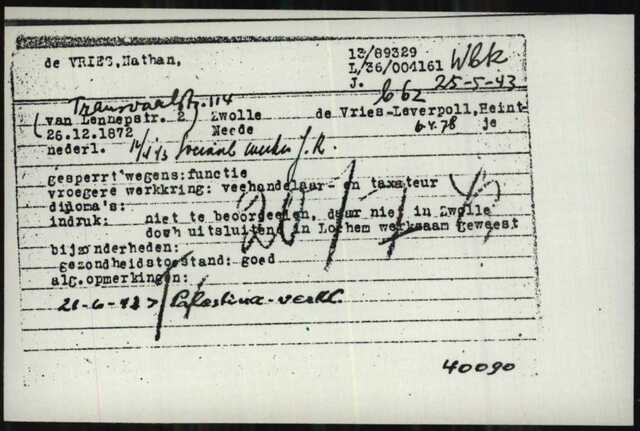 de VRIES,Nathan,
13/89329
L/36/004161 Wbk
J. 25-5-43
b 62
Transvaalstr. 114
(van Lennepstr. 2 Zwolle de Vries-Leverpoll,Heint-
26.12.1872 Neede 6.4.78 je
nederl. Sociaal werker J.R.
gesperrt wegens:functie
vroegere werkkring: veehandelaar- en taxateur
diploma's:
indruk: niet te beoordeelen, daar niet in Zwolle
dowh uitsluitend in Lochem werkzaam geweest
bijzonderheden:
gezondheidstoestand: goed
alg.opmerkingen:
21-6-43 > Palestina-verkl.
40090